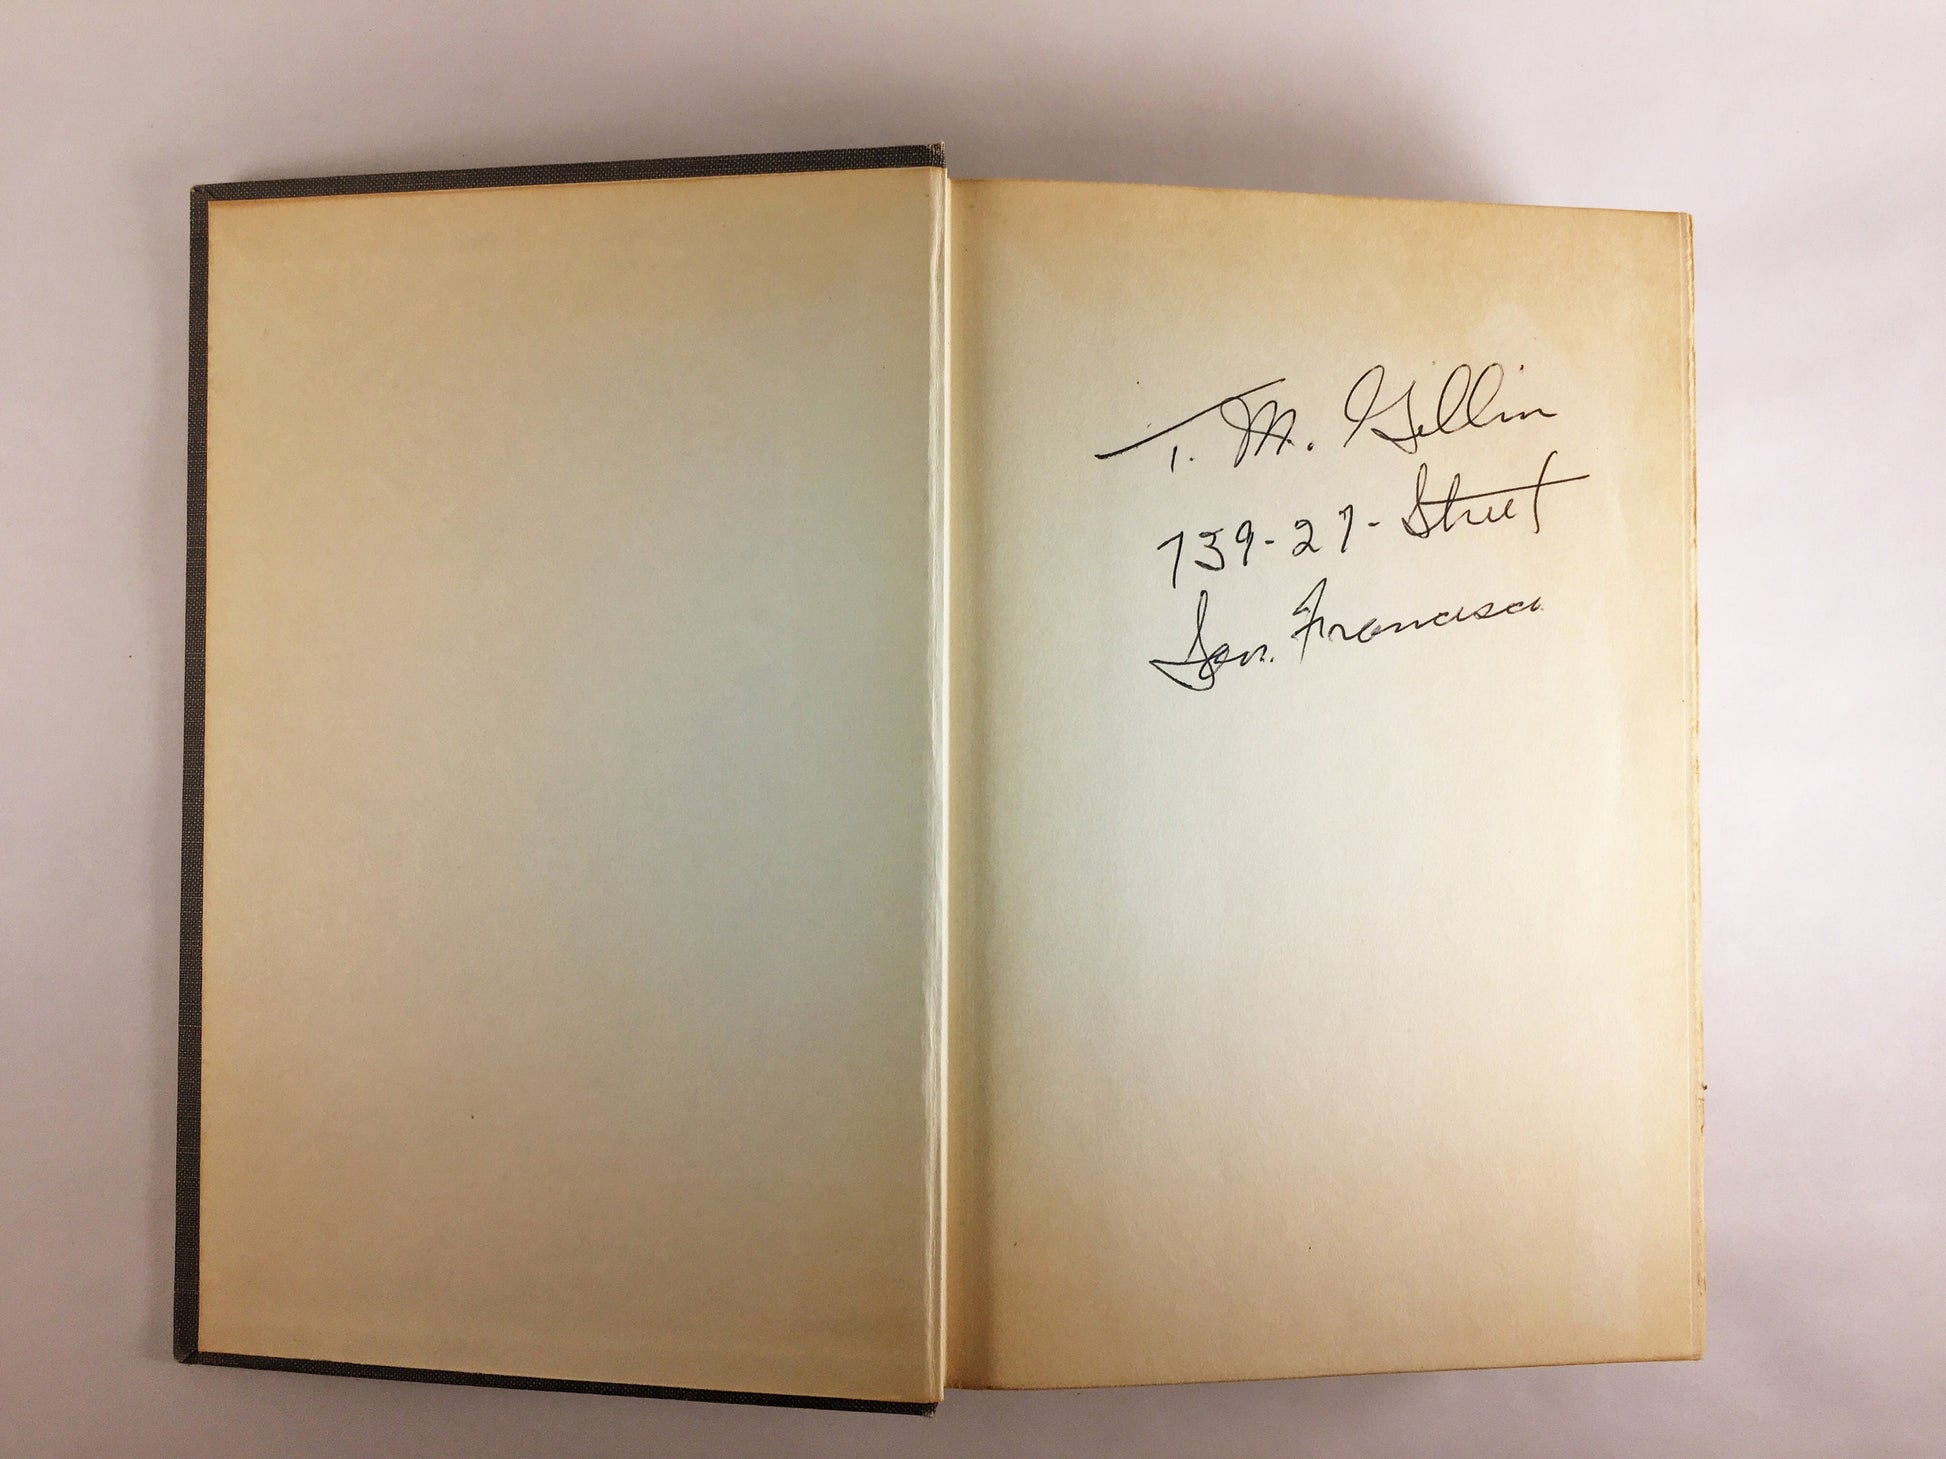 T. M. Gillin
739-27- Street
San. Francisco